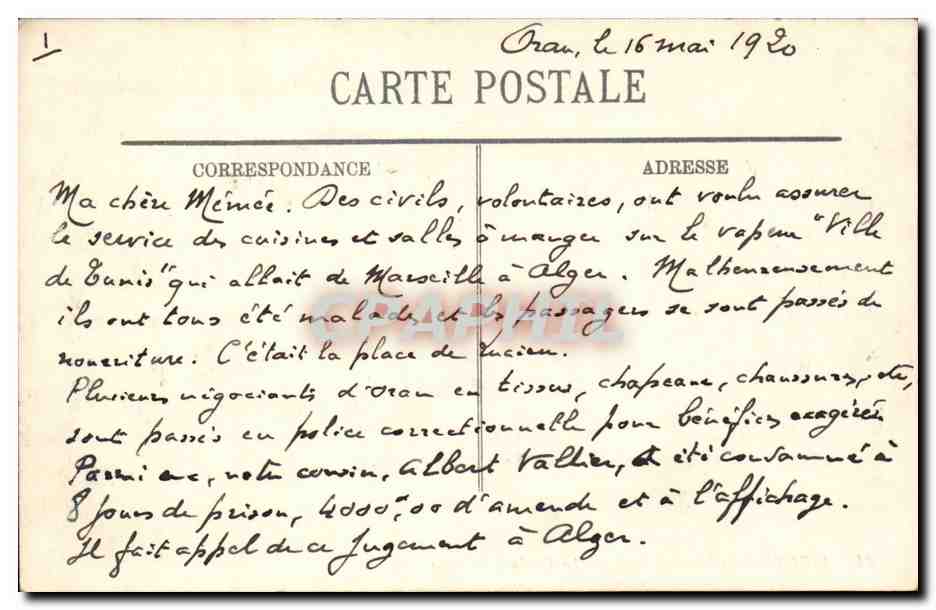 1
Oran, le 16 mai 1920
CARTE POSTALE
CORRESPONDANCE
ADRESSE
Ma chère Mémée. Des civils, volontaires, ont voulu assurer
le service des cuisines et salles à manger sur le vapeur "Ville
de Tunis" qui allait de Marseille à Alger. Malheureusement
ils ont tous été malades et les passagers se sont passés de
nourriture. C'était la place de Lucien.
CPAPHIL
Plusieurs négociants d'Oran en tissus, chapeaux, chaussures, etc,
sont passés en police correctionnelle pour bénéfices exagérés
Parmi eux, notre cousin, Albert Vallier, a été condamné à
8 jours de prison, 4000,00 d'amende et à l'affichage.
Il fait appel de ce jugement à Alger.